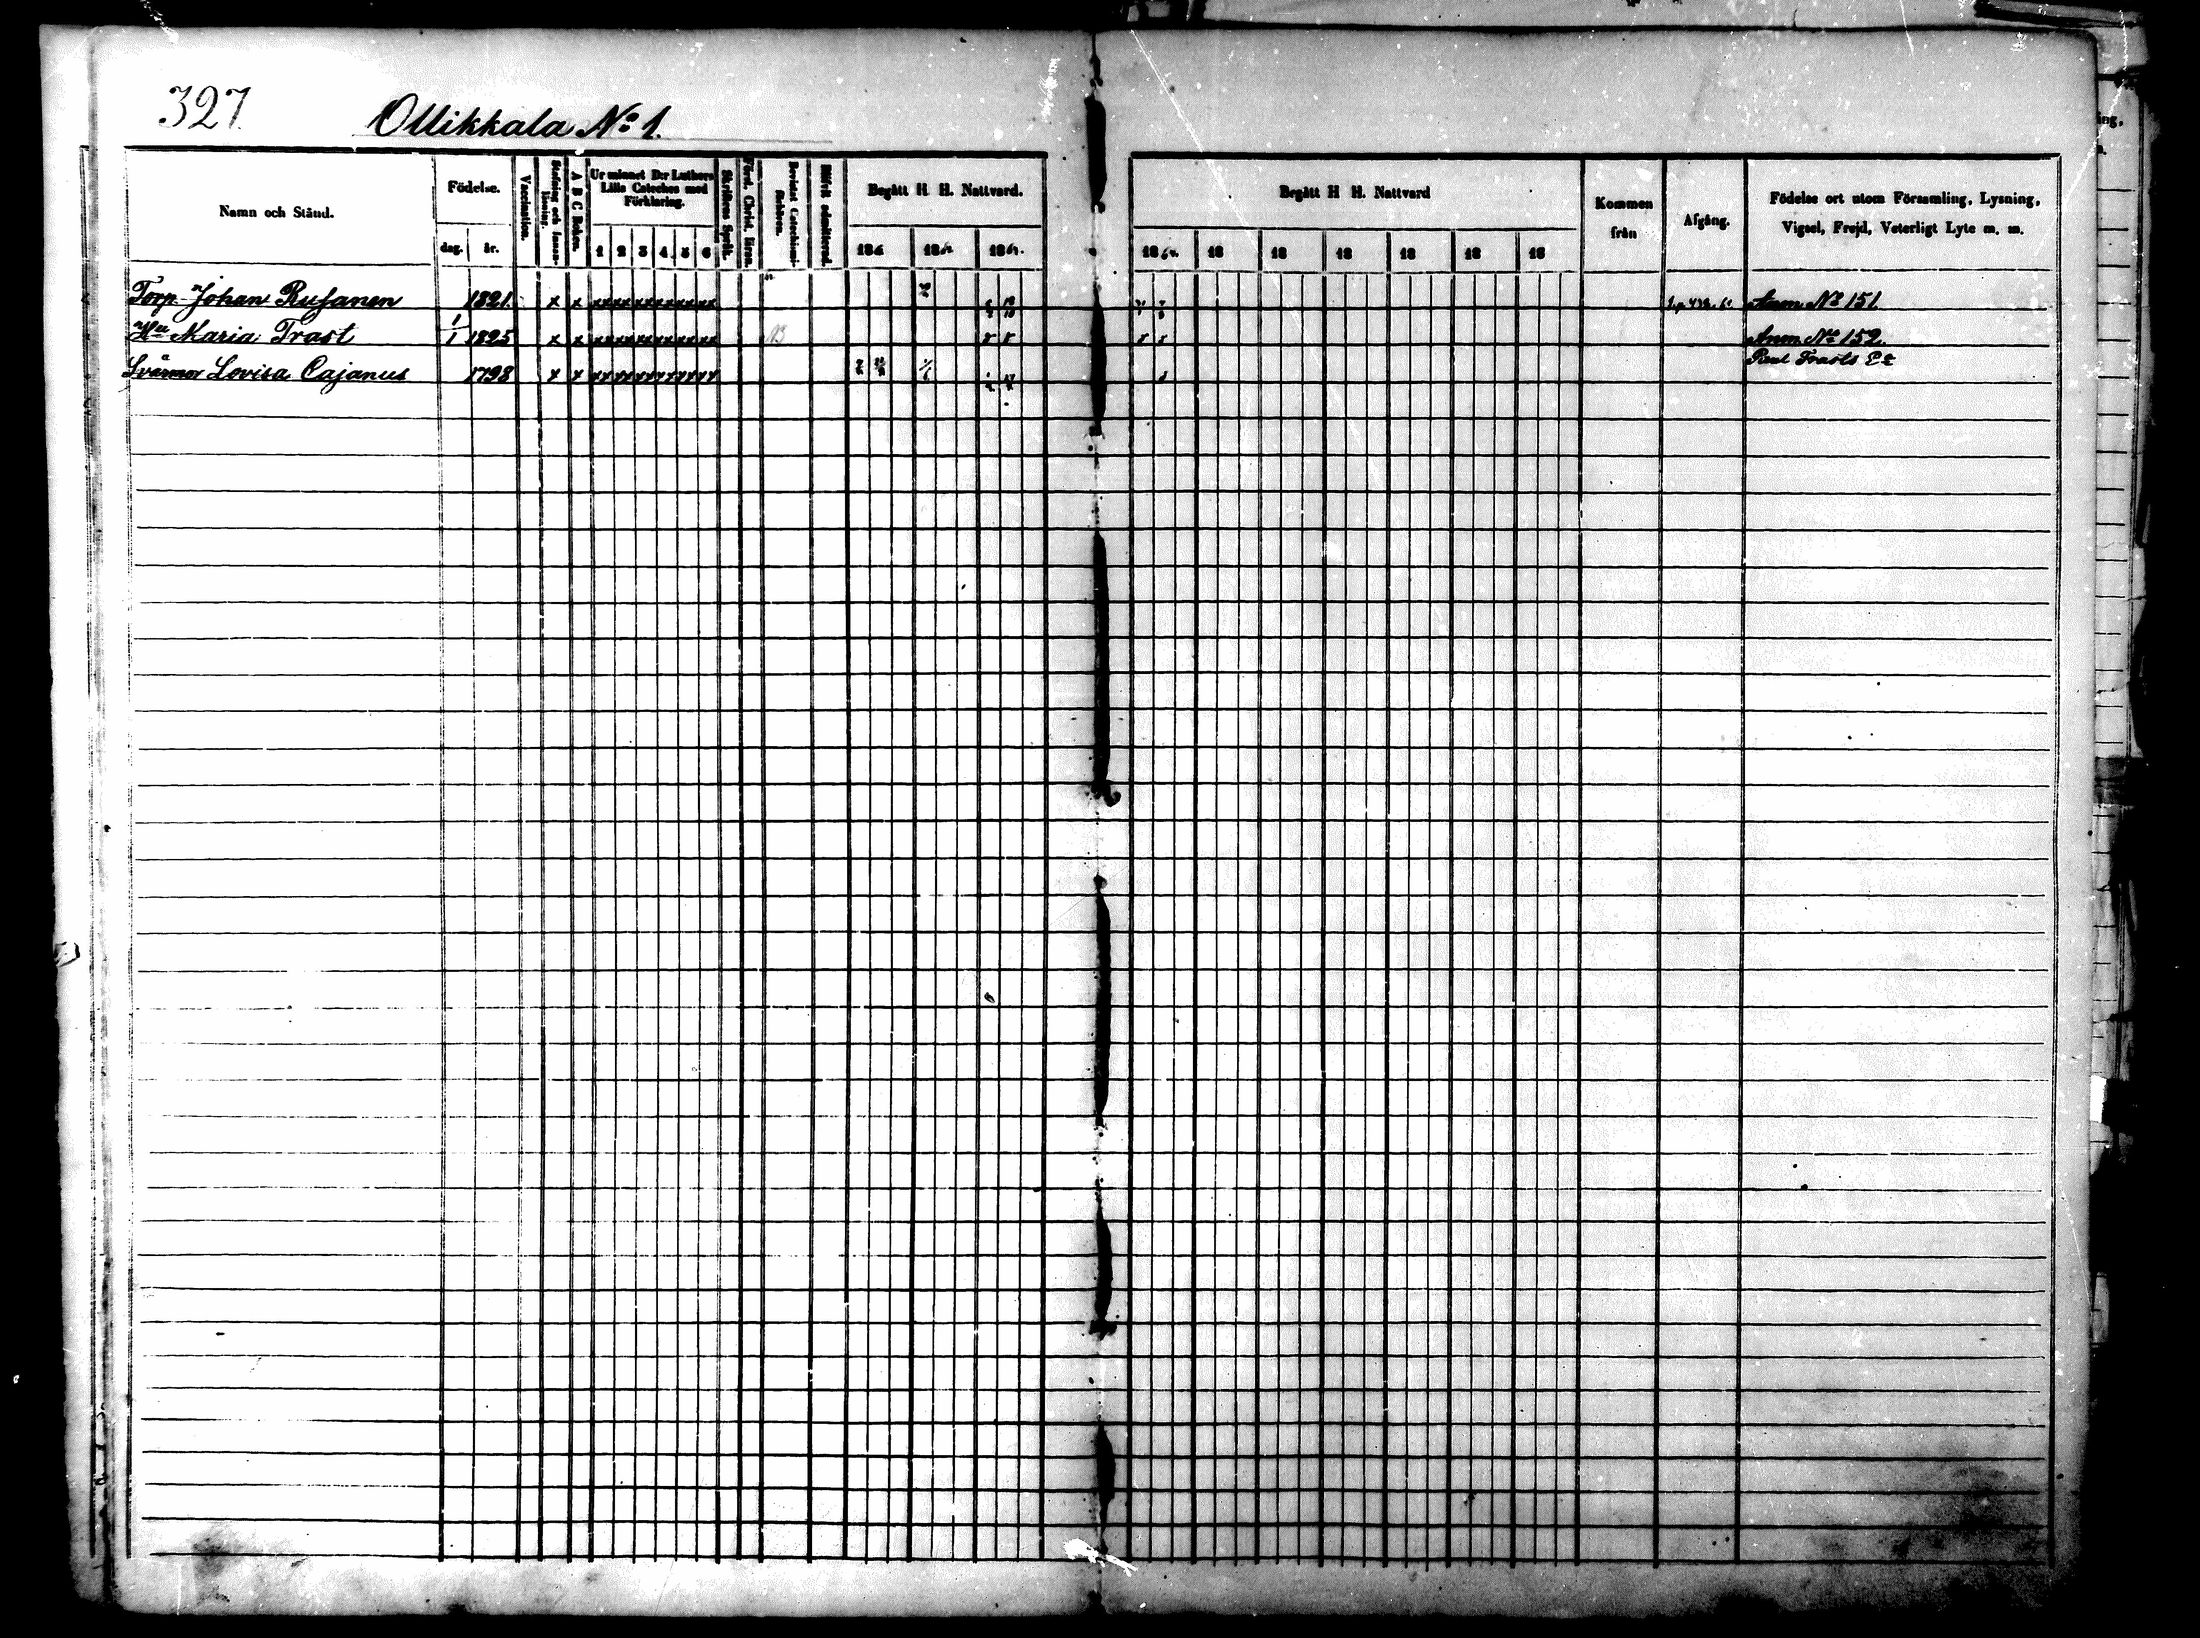 327
Ollikkala No 1.
Namn och Stånd.
Födelse.
dag.
år.
Vaccination.
Stafning och Innan-läsning.
A B C Boken.
Ur minnet D:r Luthers Lilla Cateches med Förklaring.
1 2 3 4 5 6
Skriftens Språk.
Först. Christ. läran.
Bevistat Catechismi-förhören.
Blifvit admitterad.
Begått H H. Nattvard.
186 1862 186
Begått H H. Nattvard
186 18 18 18 18 18 18
Kommen från
Afgång.
Födelse ort utom Församling, Lysning,
Vigsel, Frejd, Veterligt Lyte m. m.
Torp. Johan Rufanen 1821. x x xxxxxxxxxxxx Anm. No 151
Hu Maria Trast 1/1 1825 x x xxxxxxxxxxxx Anm. No 152.
Svärmor Lovisa Cajanus 1798 x x xxxxxxxxxxxx Paul Trasts E:a